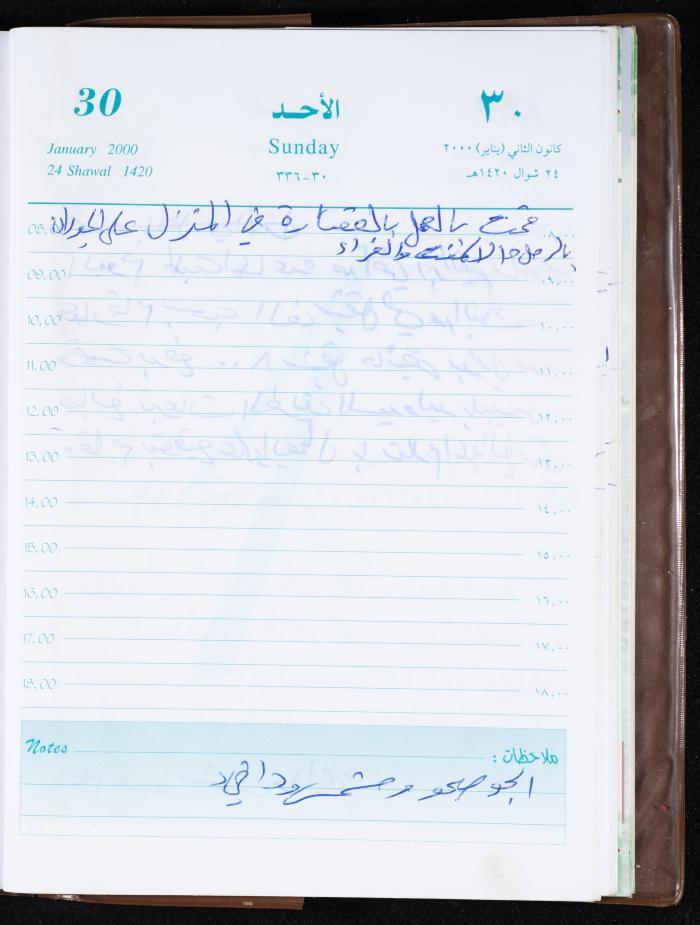 30
الأحد
٣٠
January 2000
Sunday
كانون الثاني (يناير) ٢٠٠٠
24 Shawal 1420
٣٠-٣٣٦
٢٤ شوال ١٤٢٠هـ
قمت بالعمل بالقصارة في المنزل على الجدران
بالرمل والاسمنت والغراء
08,00 ٨,٠٠
09,00 ٩,٠٠
10,00 ١٠,٠٠
11,00 ١١,٠٠
12,00 ١٢,٠٠
13,00 ١٣,٠٠
14,00 ١٤,٠٠
15,00 ١٥,٠٠
16,00 ١٦,٠٠
17,00 ١٧,٠٠
18,00 ١٨,٠٠
Notes ملاحظات :
الجو صحو ومشمس